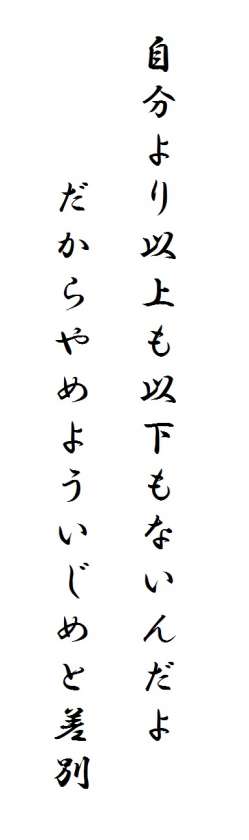 自分より以上も以下もないんだよ
だからやめよういじめと差別